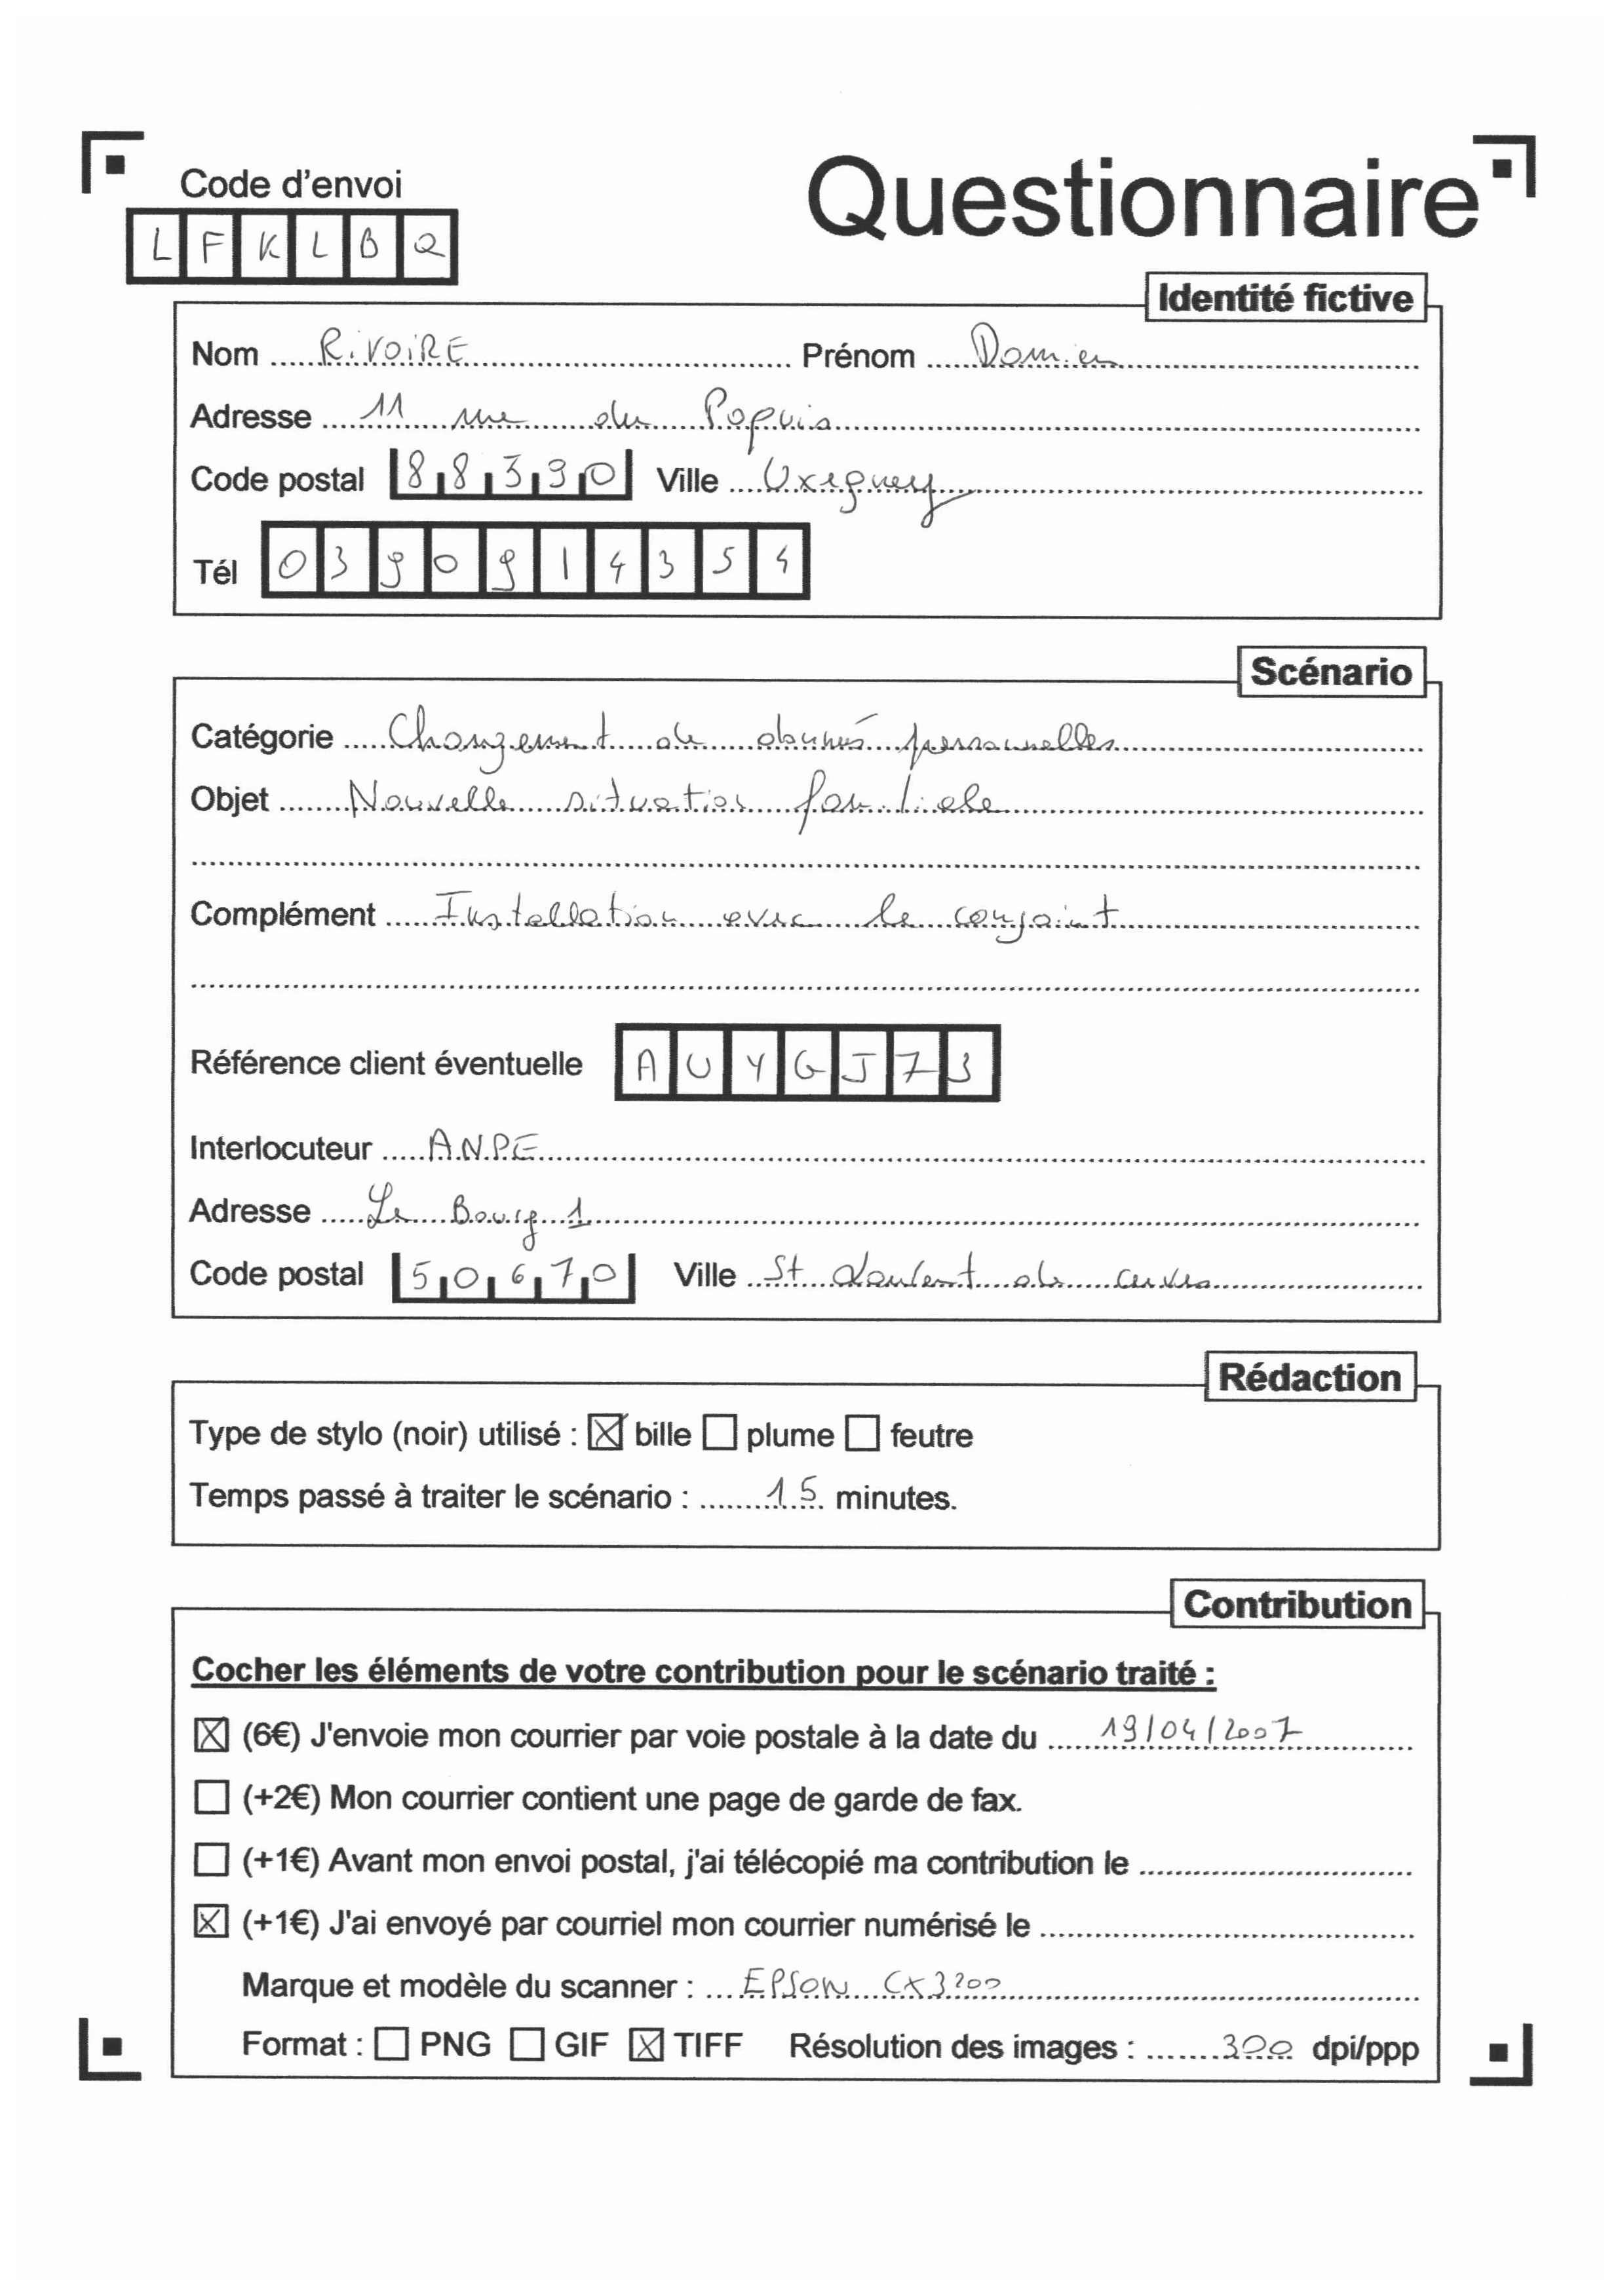 Code d'envoi
Questionnaire
LFKLBQ
Identité fictive
Nom RiVOiRE Prénom Damien
Adresse 11 rue du Paquis
Code postal 88390 Ville Uxegney
Tél 0390914354
Scénario
Catégorie Changement de données personnelles
Objet Nouvelle situation familiale
Complément Installation avec le conjoint
Référence client éventuelle AUYGJ73
Interlocuteur ANPE
Adresse Le Bourg 1
Code postal 50670 Ville St Laurent de cuves
Rédaction
Type de stylo (noir) utilisé : bille plume feutre
Temps passé à traiter le scénario : 15 minutes.
Contribution
Cocher les éléments de votre contribution pour le scénario traité :
(6€) J'envoie mon courrier par voie postale à la date du 19/04/2007
(+2€) Mon courrier contient une page de garde de fax.
(+1€) Avant mon envoi postal, j'ai télécopié ma contribution le
(+1€) J'ai envoyé par courriel mon courrier numérisé le
Marque et modèle du scanner : EPSON CX3200
Format : PNG GIF TIFF Résolution des images : 300 dpi/ppp